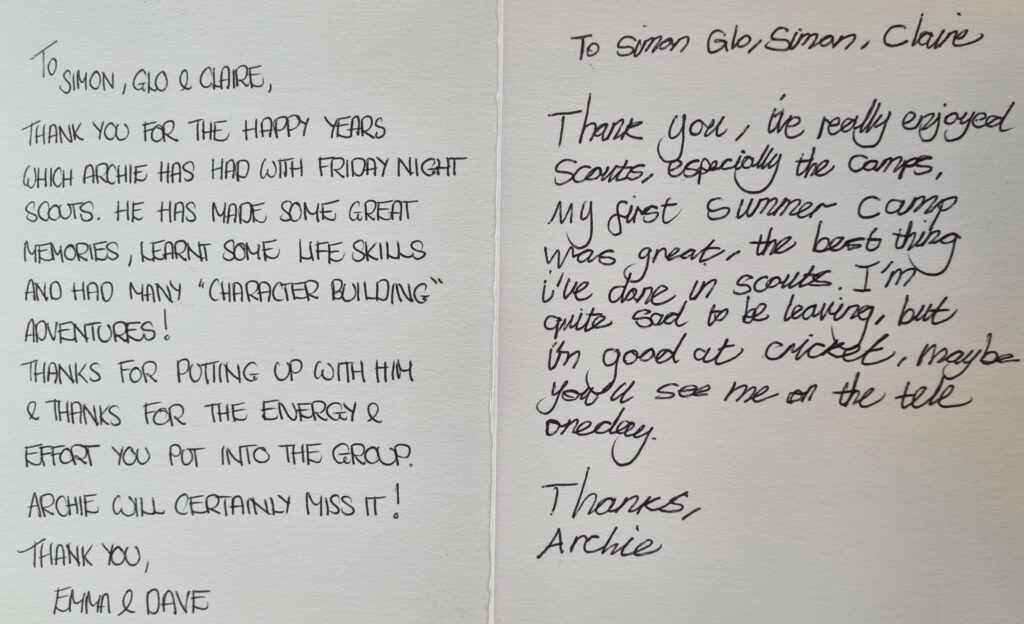 To
SIMON, GLO & CLAIRE,
THANK YOU FOR THE HAPPY YEARS
WHICH ARCHIE HAS HAD WITH FRIDAY NIGHT
SCOUTS. HE HAS MADE SOME GREAT
MEMORIES, LEARNT SOME LIFE SKILLS
AND HAD MANY "CHARACTER BUILDING"
ADVENTURES!
THANKS FOR PUTTING UP WITH HIM
& THANKS FOR THE ENERGY &
EFFORT YOU PUT INTO THE GROUP.
ARCHIE WILL CERTAINLY MISS IT!
THANK YOU,
EMMA & DAVE
To Simon Glo, Simon, Claire
Thank you, i've really enjoyed
Scouts, especially the camps,
My first summer camp
was great, the best thing
i've done in scouts. I'm
quite sad to be leaving, but
i'm good at cricket, maybe
you'll see me on the tele
oneday.
Thanks,
Archie